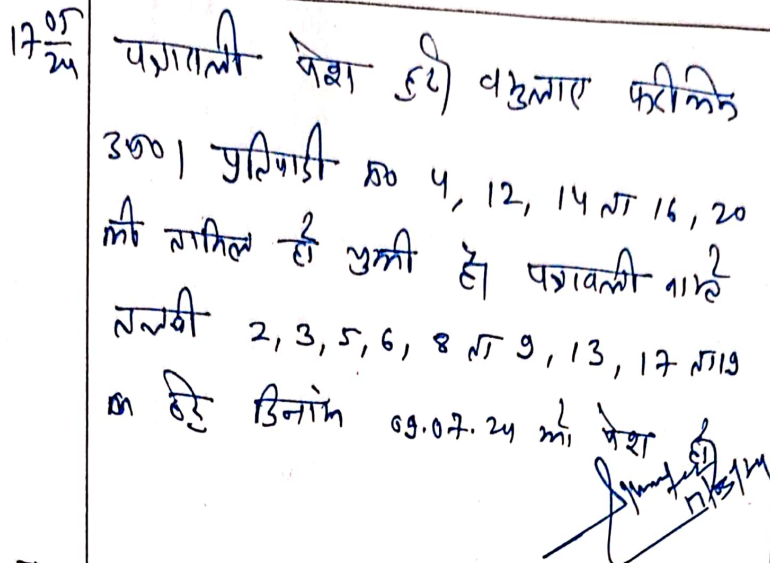 17 05/24
पत्रावली पेश हुई वकुलाए फरीकेन
उप0। प्रतिवादी सं0 4, 12, 14 ता 16, 20
की तामिल हो चुकी है। पत्रावली वास्ते
तलबी 2, 3, 5, 6, 8 ता 9, 13, 17 ता 19
के हेतु दिनांक 09.07.24 को पेश हो
17/05/24